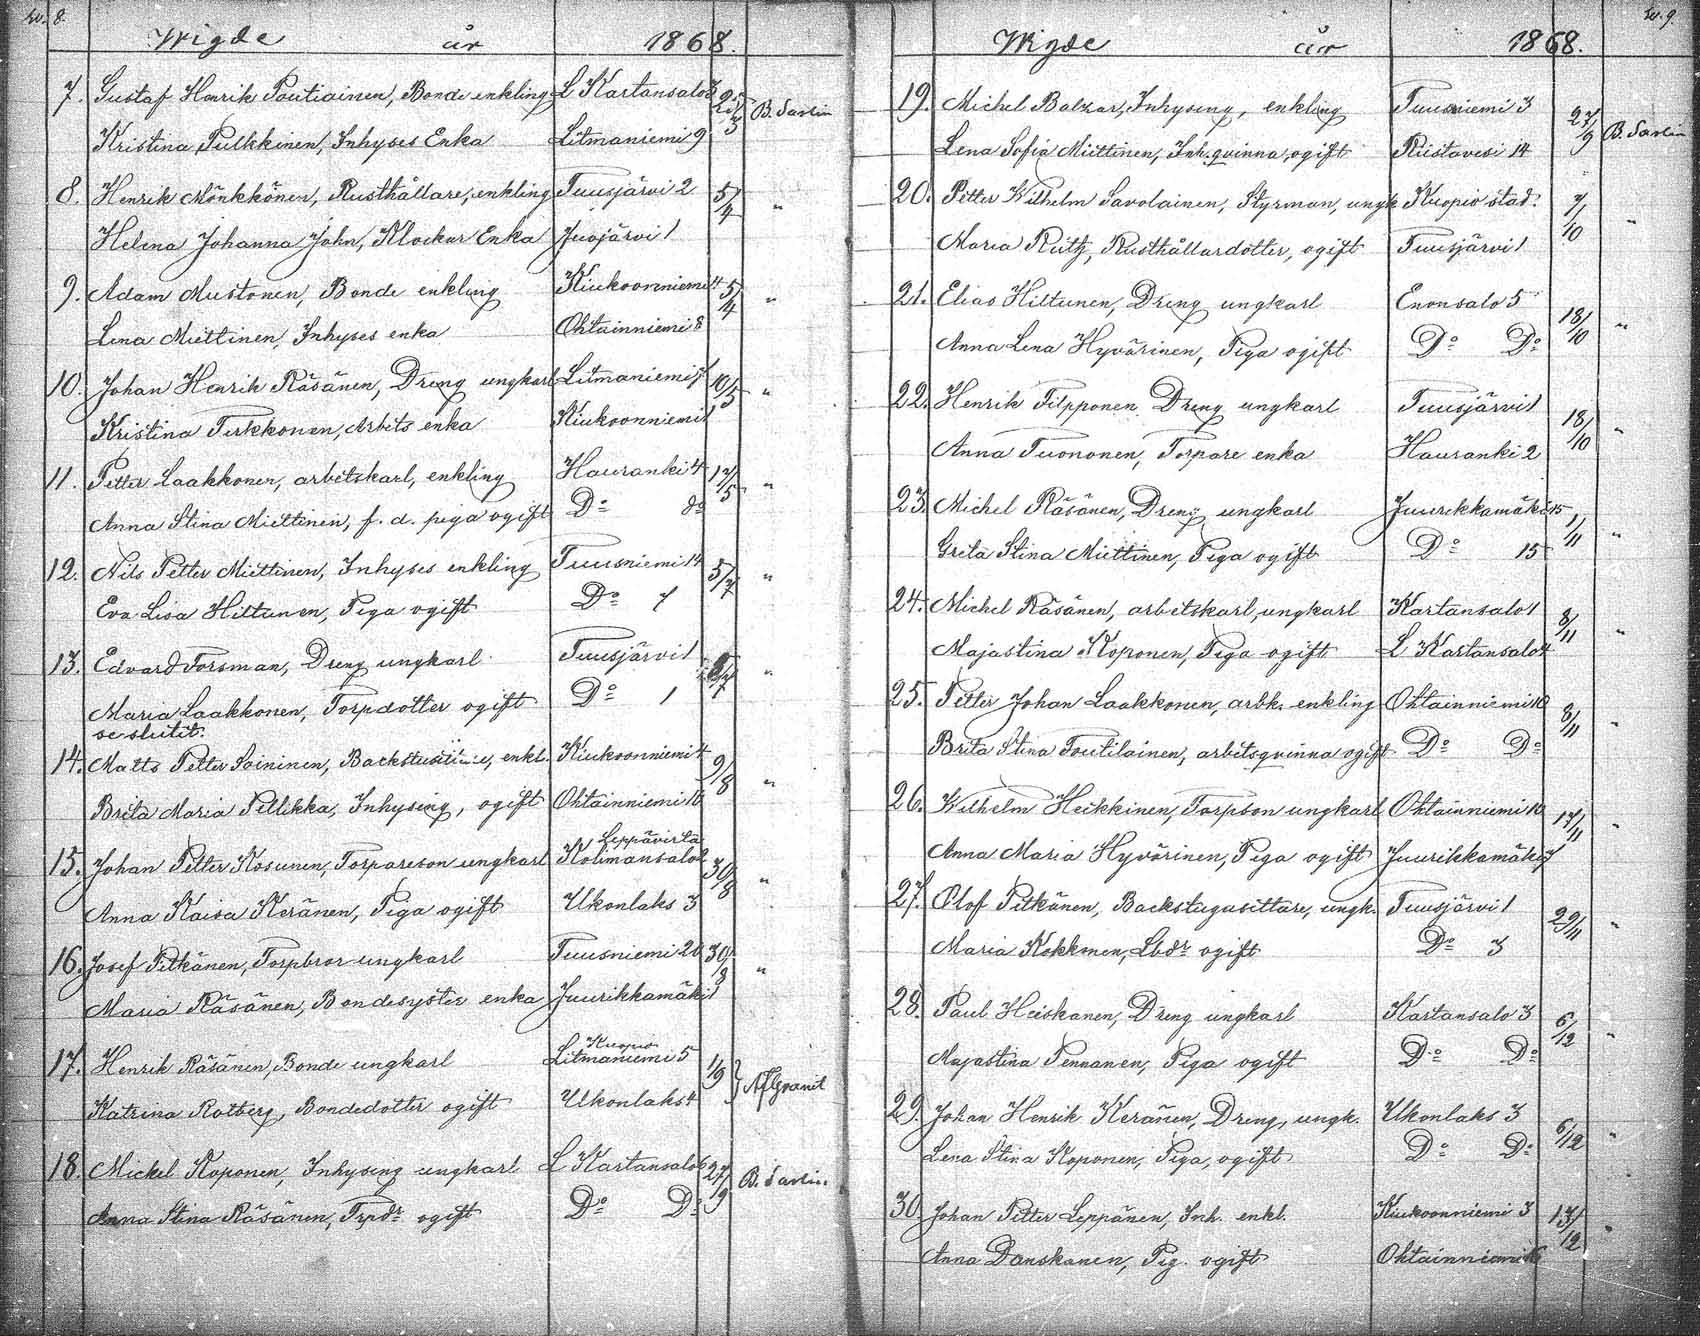 sv. 8.
Wigde år 1868.
7. Gustaf Henrik Poutiainen, Bonde enkling L Kartansalo 3 25/3 B. Sarlin
Kristina Pulkkinen, Inhyses Enka Litmaniemi 9
8. Henrik Mönkkönen, Rusthållare, enkling Tuusjärvi 2 5/4 "
Helena Johanna John, Klockar Enka Juojärvi 1
9. Adam Mustonen, Bonde enkling Kiukoonniemi 4 5/4 "
Lena Miettinen, Inhyses enka Ohtainniemi 8
10. Johan Henrik Räsänen, Dreng ungkarl Litmaniemi 7 10/5 "
Kristina Tirkkonen, Arbets enka Kiukoonniemi 1
11. Petter Laakkonen, arbetskarl, enkling Hauranki 4 17/5 "
Anna Stina Miettinen, f. d. piga ogift Do do
12. Nils Petter Miettinen, Inhyses enkling Tuusniemi 14 5/7 "
Eva Lisa Hiltunen, Piga ogift Do 7
13. Edvard Forsman, Dreng ungkarl Tuusjärvi 1 "
Maria Laakkonen, Torpdotter ogift Do 1
se slutit.
14. Matts Petter Soininen, enkl. Kiukoonniemi 4 9/8 "
Brita Maria Pellikka, Inhysing, ogift Ohtainniemi 10
Leppävirta
15. Johan Petter Kosunen, Torpareson ungkarl Kotimansalo 2 30/8 "
Anna Kaisa Keränen, Piga ogift Ukonlaks 3
16. Josef Pitkänen, Torpbror ungkarl Tuusniemi 20 30/8 "
Maria Räsänen, Bondesyster enka Juurikkamäki 1
Kuopio
17. Henrik Räsänen, Bonde ungkarl Litmaniemi 5 1/9 } AfGranit
Katrina Rotberg, Bondedotter ogift Ukonlaks 4
18. Mickel Koponen, Inhysing ungkarl L Kartansalo 6 27/9 B. Sarlin
Anna Stina Räsänen, Trpdr ogift Do Do
sv. 9.
Wigde år 1868.
19. Michel Balzar, Inhysing, enkling Tuusniemi 3 27/9 B. Sarlin
Lena Sofia Miettinen, Inh. qvinna, ogift Riistavesi 14
20. Petter Wilhelm Savolainen, Styrman, ungk Kuopio stad. 7/10 "
Maria Rütz, Rusthållardotter, ogift Tuusjärvi 1
21. Elias Hiltunen, Dreng ungkarl Enonsalo 5 18/10 "
Anna Lena Hyvärinen, Piga ogift Do Do
22. Henrik Filpponen Dreng ungkarl Tuusjärvi 1 18/10 "
Anna Tuononen, Torpare enka Hauranki 2
23. Michel Räsänen, Dreng ungkarl Juurikkamäki 15 1/11 "
Greta Stina Miettinen, Piga ogift Do 15
24. Michel Räsänen, arbetskarl, ungkarl Kartansalo 1 8/11 "
Majastina Koponen, Piga ogift L Kartansalo 4
25. Petter Johan Laakkonen, arbk. enkling Ohtainniemi 10 8/11 "
Brita Stina Toutilainen, arbetsqvinna ogift Do Do
26. Wilhelm Heikkinen, Torpson ungkarl Ohtainniemi 10 17/11 "
Anna Maria Hyvärinen, Piga ogift Juurikkamäki 7
27. Olof Pitkänen, Backstugusittare, ungk. Tuusjärvi 1 29/11 "
Maria Kokkonen, Lbdr ogift Do 3
28. Paul Heiskanen, Dreng ungkarl Kartansalo 3 6/12 "
Majastina Pennanen, Piga ogift Do Do
29. Johan Henrik Keränen, Dreng, ungk. Ukonlaks 3 6/12 "
Lena Stina Koponen, Piga, ogift Do Do
30. Johan Petter Leppänen, Inh. enkl. Kiukoonniemi 3 13/12 "
Anna Danskanen, Pig. ogift Ohtainniemi